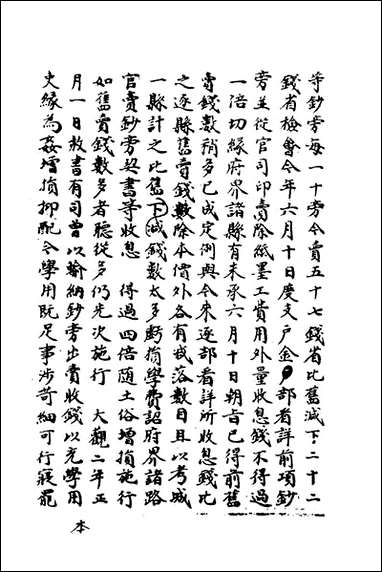 等鈔旁每一十旁今賣五十七錢省比舊減下二十二
錢省檢會今年六月十日度支戶金部看詳前項鈔
旁並從官司印賣除紙墨工費用外量收息錢不得過
一倍切緣府界諸縣有未承六月十日朔旨已得前舊
賣錢數稍多已成定例與今來逐部看詳所收息錢比
之逐縣舊賣錢數除本價外各有或落數目且以考城
一縣計之比舊下減錢數太多虧損學費詔府界諸路
官賣鈔旁契書等收息　得過四倍隨土俗增損施行
如舊賣錢數多者聽從多仍先次施行　大觀二年正
月一日赦書有司曾以輸納鈔旁出賣收錢以充學用
吏緣為姦增損抑配今學用既足事涉苛細可行寢罷
本